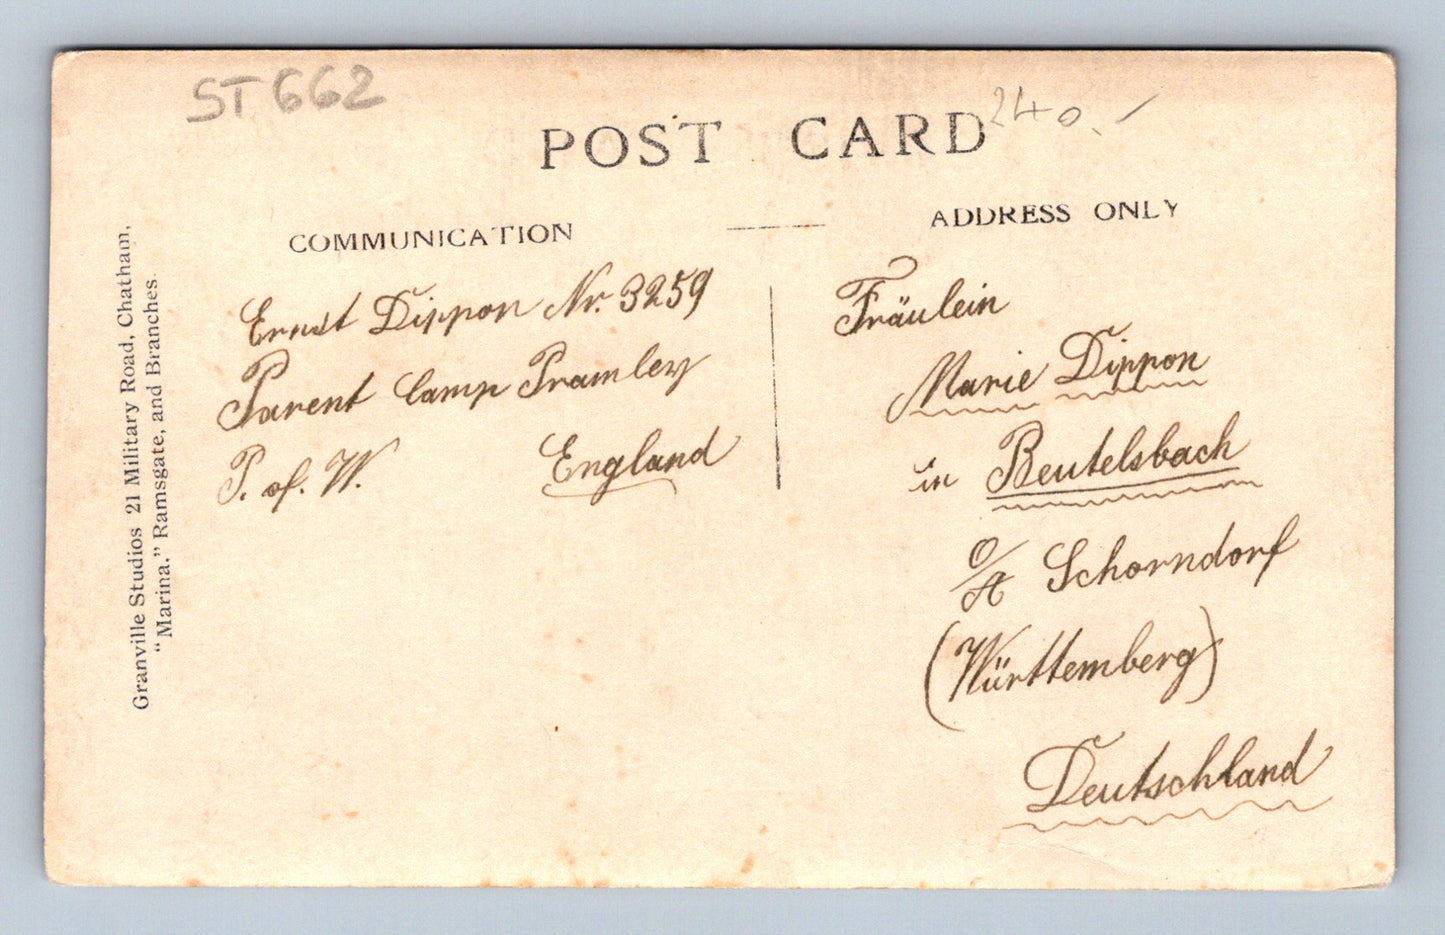 ST 662
POST CARD
240.-
COMMUNICATION
ADDRESS ONLY
Granville Studios 21 Military Road, Chatham,
"Marina." Ramsgate, and Branches
Ernst Dippon Nr. 3259
Parent Camp Pramley
P. of. W. England
Fräulein
Marie Dippon
in Beutelsbach
O/A Schorndorf
(Württemberg)
Deutschland